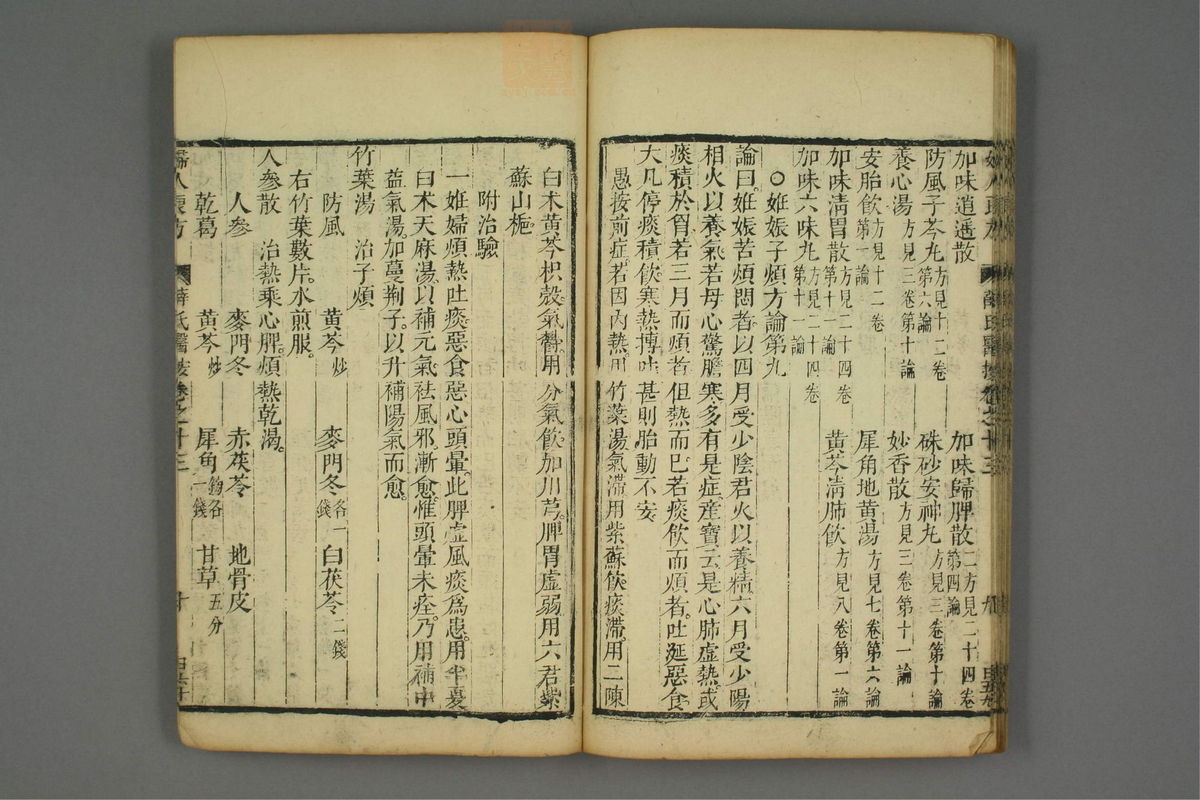 加味逍遥散 加味歸脾散二方見二十四卷第四論
防風子芩丸方見十二卷第六論 硃砂安神丸方見三卷第十論
養心湯方見三卷第十論 妙香散方見三卷第十一論
安胎飲方見十二卷第一論 犀角地黄湯方見七卷第六論
加味清胃散方見二十四卷第十一論 黄芩清肺飲方見八卷第一論
加味六味丸方見二十四卷第十一論
○姙娠子煩方論第九
論曰姙娠苦煩悶者以四月受少陰君火以養精六月受少陽
相火以養氣若母心驚膽寒多有是症產寶云是心肺虛熱或
痰積於胷若三月而煩者但熱而巳若痰飲而煩者吐涎惡食
大凡停痰積飲寒熱摶吐甚則胎動不安
愚按前症若因内熱用竹葉湯氣滯用紫蘇飲痰滯用二陳
白术黄芩枳殼氣欝用分氣飲加川芎脾胃虛弱用六君紫
蘇山梔
附治驗
一姙婦煩熱吐痰惡食惡心頭暈此脾虛風痰爲患用半夏
白术天麻湯以補元氣祛風邪漸愈惟頭暈未痊乃用補中
益氣湯加蔓荆子以升補陽氣而愈
竹葉湯 治子煩
防風 黄芩炒 麥門冬各一錢 白茯苓二錢
右竹葉數片水煎服
人參散 治熱乘心脾煩熱乾渴
人參 麥門冬 赤茯苓 地骨皮
乾葛 黄芩炒 犀角鎊各一錢 甘草五分
婦人良方 薛氏醫按卷之十三 十